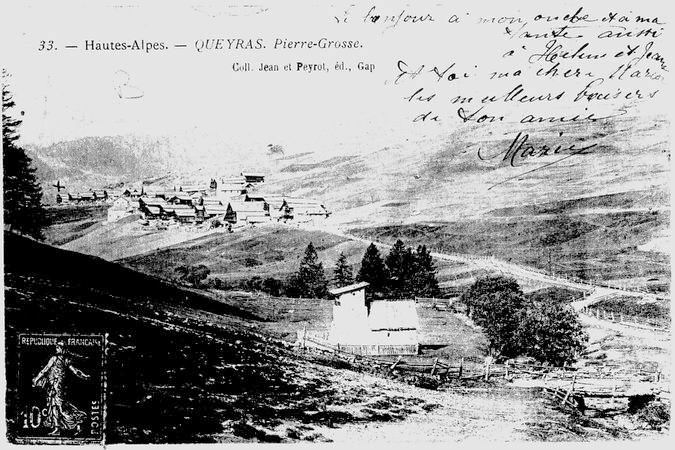 33. — Hautes-Alpes. — QUEYRAS. Pierre-Grosse.
Coll. Jean et Peyrot, éd., Gap
Le bonjour à mon oncle et à ma
tante aussi
à et Jean
Et toi ma chere Maria
les meilleurs baisers
de ton amie
Marie
REPUBLIQUE FRANÇAISE
10c POSTES